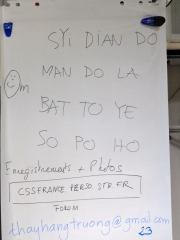 SYI DIAN DO
MAN DO LA
BAT TO YE
SO PO HO
Enregistrements + Photos
CSSFRANCE.PERSO.SFR.FR
FORUM
thayhangtruong@gmail.com
23